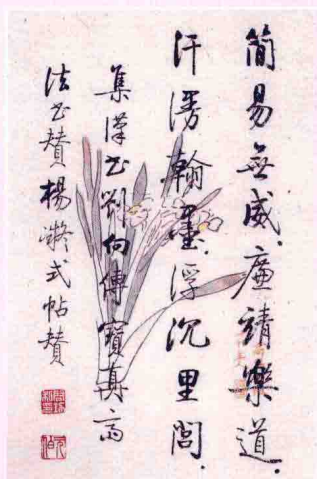 簡易無威廉靖樂道
汗漫翰墨浮沉里閭
集漢書劉向傳寶真齋
法書贊楊凝式帖贊